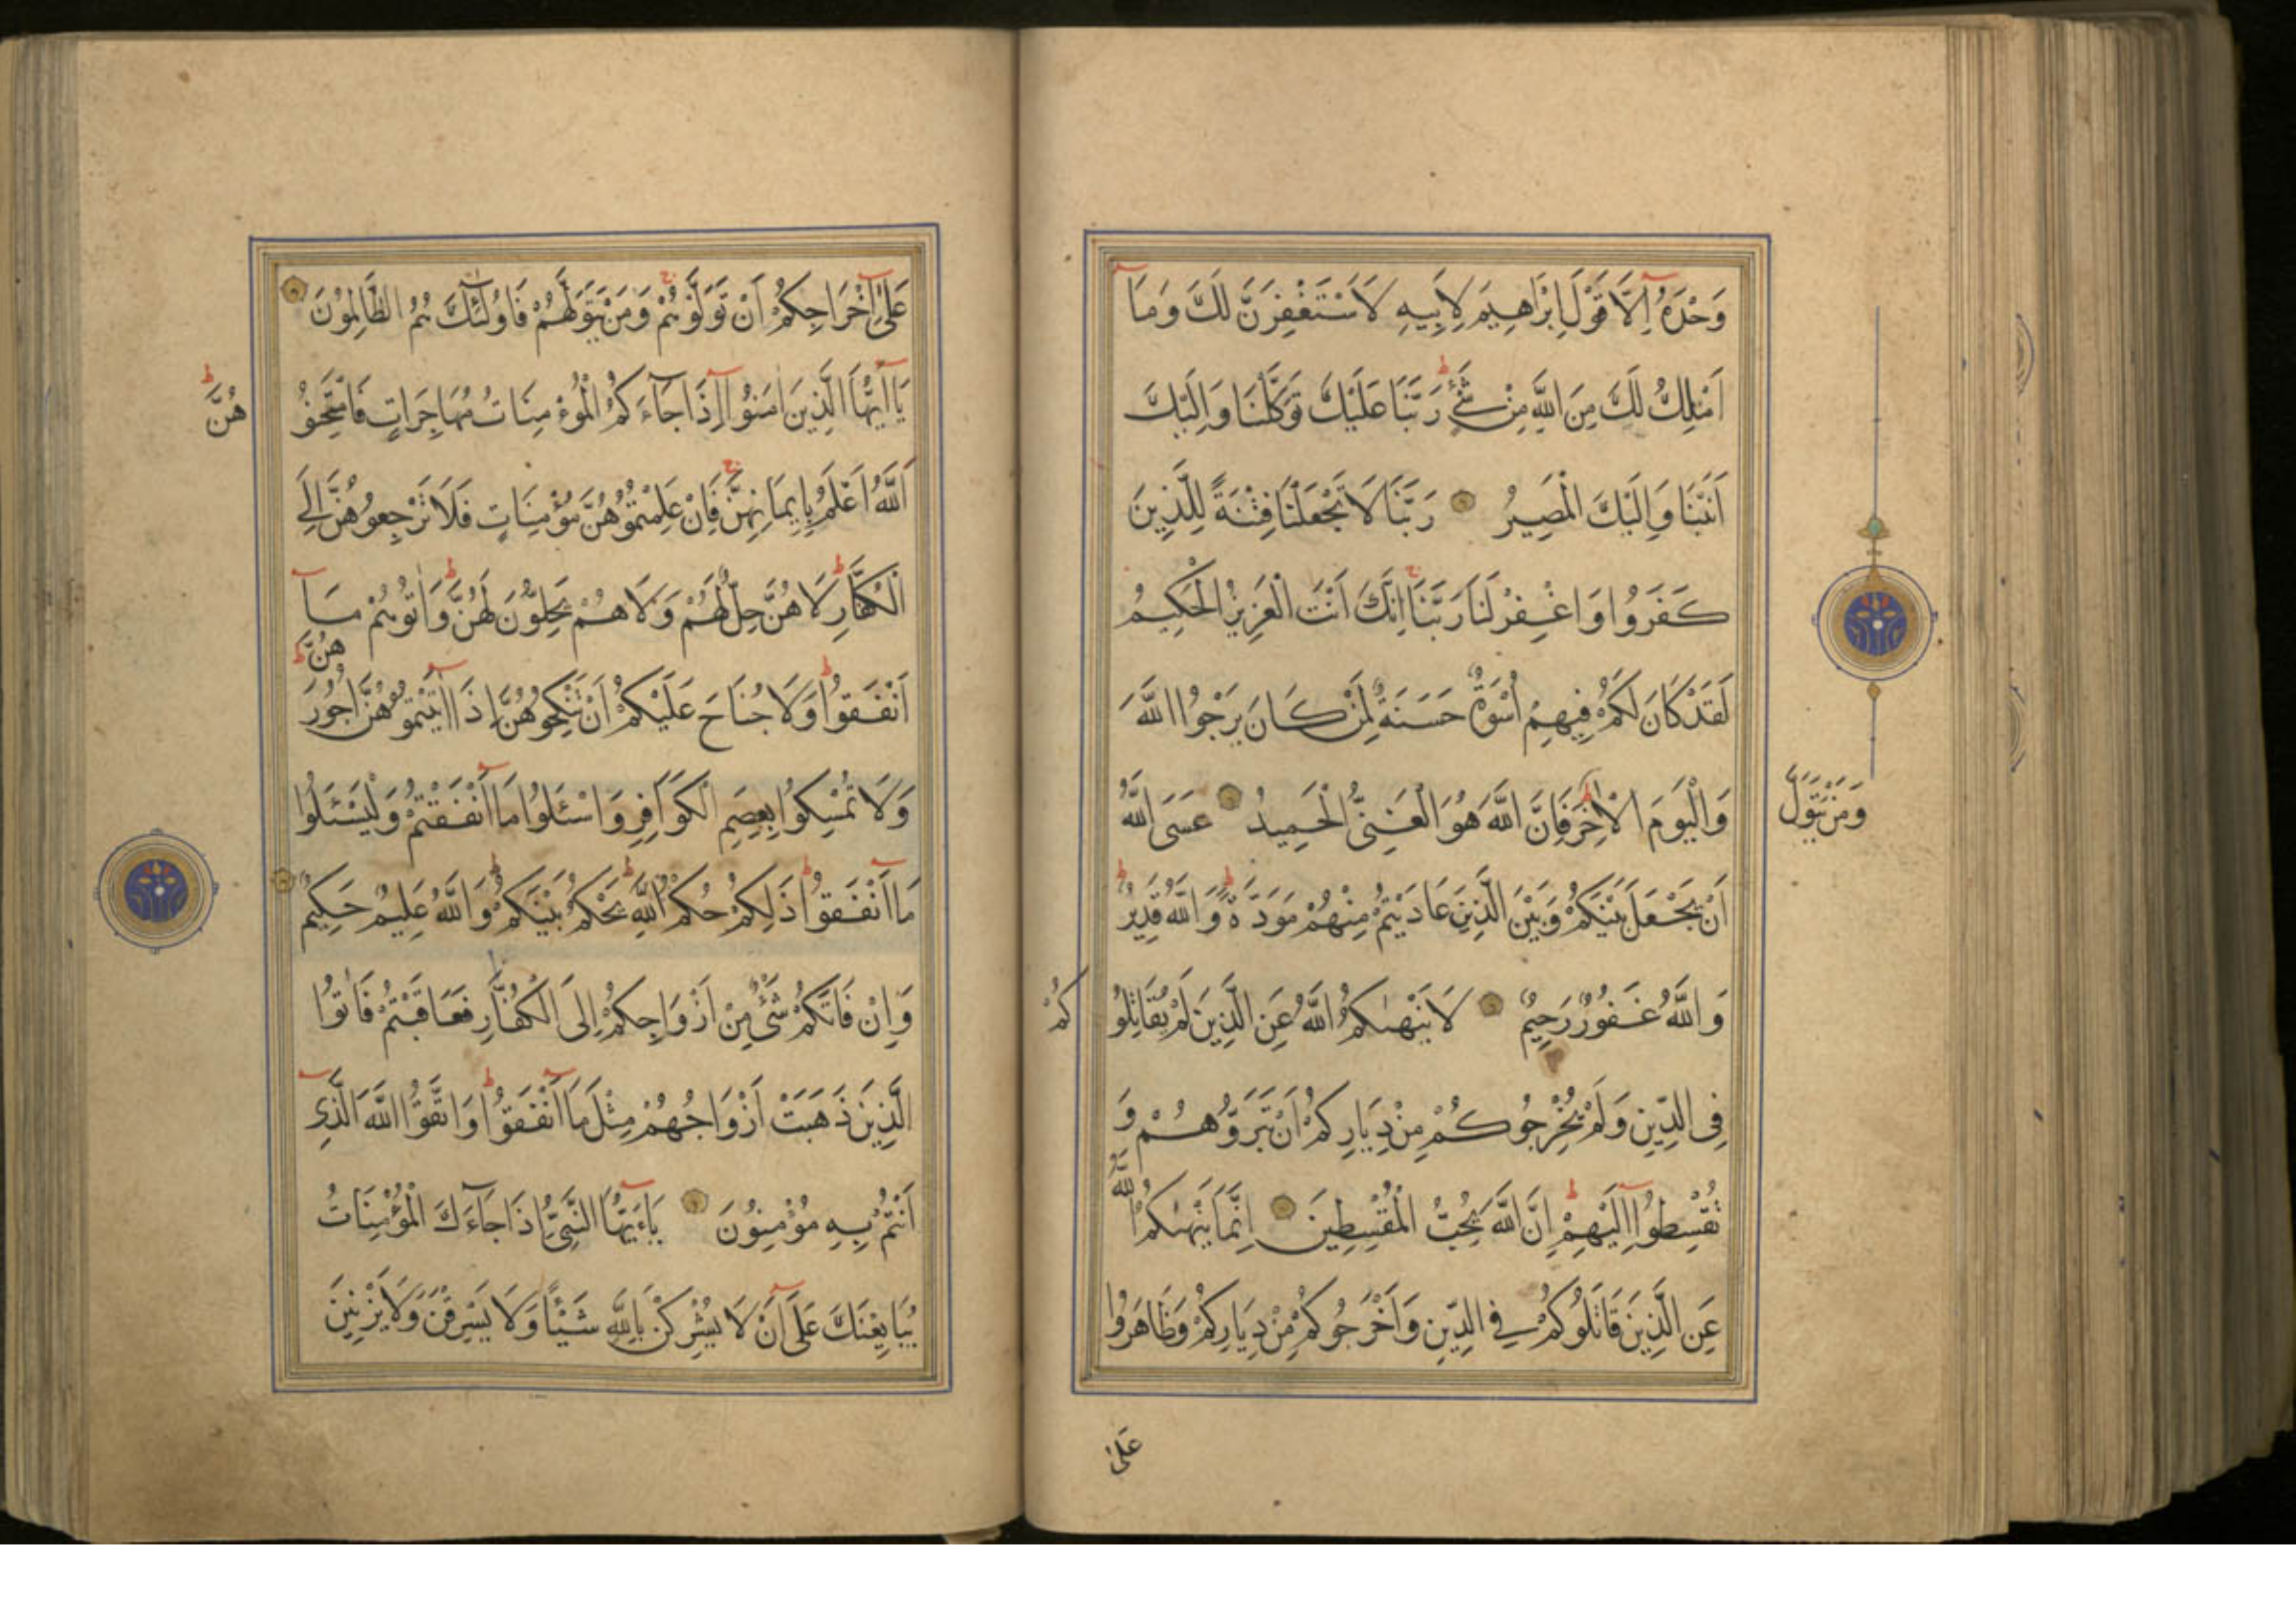 وَحْدَهُ إِلَّا قَوْلَ إِبْرَاهِيمَ لِأَبِيهِ لَأَسْتَغْفِرَنَّ لَكَ وَمَا
أَمْلِكُ لَكَ مِنَ اللَّهِ مِنْ شَيْءٍ ط رَبَّنَا عَلَيْكَ تَوَكَّلْنَا وَإِلَيْكَ
أَنَبْنَا وَإِلَيْكَ الْمَصِيرُ رَبَّنَا لَا تَجْعَلْنَا فِتْنَةً لِلَّذِينَ
كَفَرُوا وَاغْفِرْ لَنَا رَبَّنَا ج إِنَّكَ أَنْتَ الْعَزِيزُ الْحَكِيمُ
لَقَدْ كَانَ لَكُمْ فِيهِمْ أُسْوَةٌ حَسَنَةٌ لِمَنْ كَانَ يَرْجُوا اللَّهَ
وَالْيَوْمَ الْآخِرَ ط وَمَنْ يَتَوَلَّ
فَإِنَّ اللَّهَ هُوَ الْغَنِيُّ الْحَمِيدُ عَسَى اللَّهُ
أَنْ يَجْعَلَ بَيْنَكُمْ وَبَيْنَ الَّذِينَ عَادَيْتُمْ مِنْهُمْ مَوَدَّةً ط وَاللَّهُ قَدِيرٌ ط
وَاللَّهُ غَفُورٌ رَحِيمٌ لَا يَنْهٰىكُمُ اللَّهُ عَنِ الَّذِينَ لَمْ يُقَاتِلُو كُمْ
فِي الدِّينِ وَلَمْ يُخْرِجُوكُمْ مِنْ دِيَارِكُمْ أَنْ تَبَرُّوهُمْ وَ
تُقْسِطُوا إِلَيْهِمْ ط إِنَّ اللَّهَ يُحِبُّ الْمُقْسِطِينَ إِنَّمَا يَنْهٰىكُمُ اللَّهُ
عَنِ الَّذِينَ قَاتَلُوكُمْ فِي الدِّينِ وَأَخْرَجُوكُمْ مِنْ دِيَارِكُمْ وَظَاهَرُوا
عَلٰى
عَلٰى إِخْرَاجِكُمْ أَنْ تَوَلَّوْهُمْ ج وَمَنْ يَتَوَلَّهُمْ فَأُولٰئِكَ هُمُ الظَّالِمُونَ
يَا أَيُّهَا الَّذِينَ اٰمَنُوا إِذَا جَاءَكُمُ الْمُؤْمِنَاتُ مُهَاجِرَاتٍ فَامْتَحِنُو هُنَّ ط
اَللَّهُ أَعْلَمُ بِإِيمَانِهِنَّ ج فَإِنْ عَلِمْتُمُوهُنَّ مُؤْمِنَاتٍ فَلَا تَرْجِعُوهُنَّ إِلَى
الْكُفَّارِ ط لَا هُنَّ حِلٌّ لَهُمْ وَلَا هُمْ يَحِلُّونَ لَهُنَّ ط وَاٰتُوهُمْ مَا
أَنْفَقُوا ط وَلَا جُنَاحَ عَلَيْكُمْ أَنْ تَنْكِحُوهُنَّ إِذَا اٰتَيْتُمُوهُنَّ أُجُورَ هُنَّ ط
وَلَا تُمْسِكُوا بِعِصَمِ الْكَوَافِرِ وَاسْئَلُوا مَا أَنْفَقْتُمْ وَلْيَسْئَلُوا
مَا أَنْفَقُوا ط ذٰلِكُمْ حُكْمُ اللَّهِ ط يَحْكُمُ بَيْنَكُمْ ط وَاللَّهُ عَلِيمٌ حَكِيمٌ
وَإِنْ فَاتَكُمْ شَيْءٌ مِنْ أَزْوَاجِكُمْ إِلَى الْكُفَّارِ فَعَاقَبْتُمْ فَاٰتُوا
الَّذِينَ ذَهَبَتْ أَزْوَاجُهُمْ مِثْلَ مَا أَنْفَقُوا ط وَاتَّقُوا اللَّهَ الَّذِي
أَنْتُمْ بِهِ مُؤْمِنُونَ يَاءَيُّهَا النَّبِيُّ إِذَا جَاءَكَ الْمُؤْمِنَاتُ
يُبَايِعْنَكَ عَلَى أَنْ لَا يُشْرِكْنَ بِاللَّهِ شَيْئًا وَلَا يَسْرِقْنَ وَلَا يَزْنِينَ